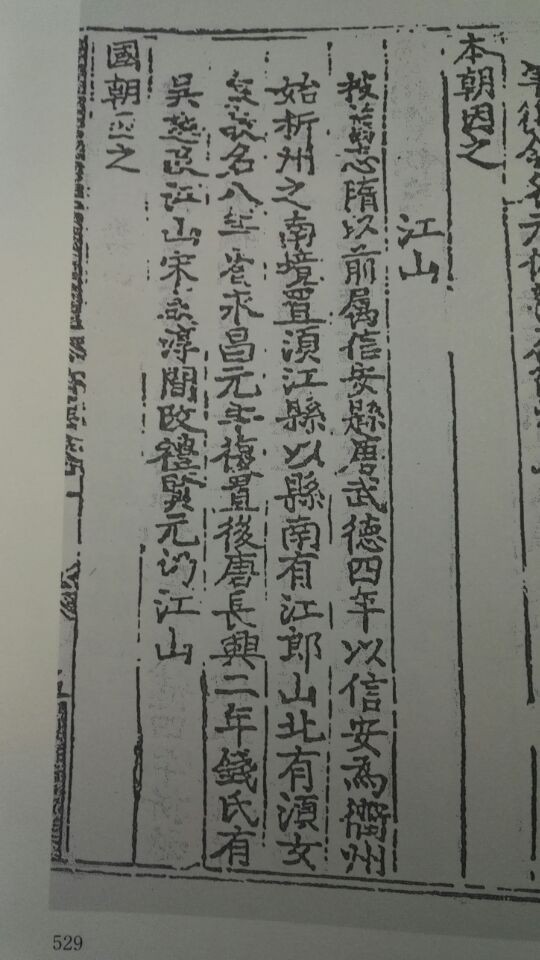 本朝因之
江山
按舊志隋以前属信安縣唐武德四年以信安為衢州
始析州之南境置湏江縣以縣南有江郎山北有湏女
泉故名八年省永昌元年復置後唐長興二年錢氏有
吳越改江山宋咸淳間改禮賢元仍江山
國朝因之
529